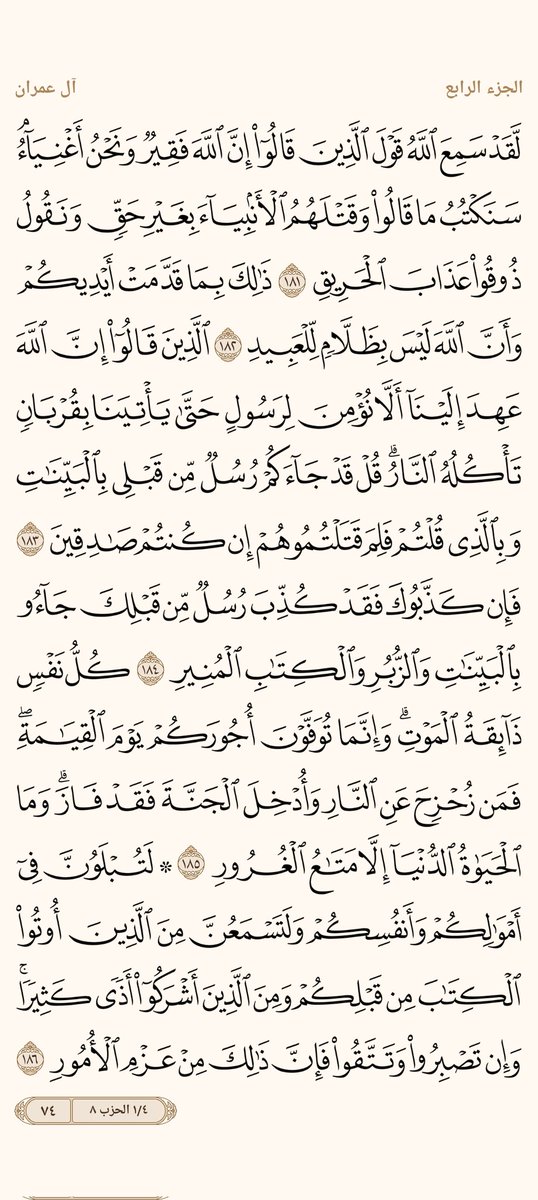 الجزء الرابع
آل عمران
لَّقَدْ سَمِعَ ٱللَّهُ قَوْلَ ٱلَّذِينَ قَالُوٓا۟ إِنَّ ٱللَّهَ فَقِيرٌ وَنَحْنُ أَغْنِيَآءُ ۘ
سَنَكْتُبُ مَا قَالُوا۟ وَقَتْلَهُمُ ٱلْأَنۢبِيَآءَ بِغَيْرِ حَقٍّ وَنَقُولُ
ذُوقُوا۟ عَذَابَ ٱلْحَرِيقِ ١٨١ ذَٰلِكَ بِمَا قَدَّمَتْ أَيْدِيكُمْ
وَأَنَّ ٱللَّهَ لَيْسَ بِظَلَّامٍ لِّلْعَبِيدِ ١٨٢ ٱلَّذِينَ قَالُوٓا۟ إِنَّ ٱللَّهَ
عَهِدَ إِلَيْنَآ أَلَّا نُؤْمِنَ لِرَسُولٍ حَتَّىٰ يَأْتِيَنَا بِقُرْبَانٍ
تَأْكُلُهُ ٱلنَّارُ ۗ قُلْ قَدْ جَآءَكُمْ رُسُلٌ مِّن قَبْلِى بِٱلْبَيِّنَٰتِ
وَبِٱلَّذِى قُلْتُمْ فَلِمَ قَتَلْتُمُوهُمْ إِن كُنتُمْ صَٰدِقِينَ ١٨٣
فَإِن كَذَّبُوكَ فَقَدْ كُذِّبَ رُسُلٌ مِّن قَبْلِكَ جَآءُو
بِٱلْبَيِّنَٰتِ وَٱلزُّبُرِ وَٱلْكِتَٰبِ ٱلْمُنِيرِ ١٨٤ كُلُّ نَفْسٍ
ذَآئِقَةُ ٱلْمَوْتِ ۗ وَإِنَّمَا تُوَفَّوْنَ أُجُورَكُمْ يَوْمَ ٱلْقِيَٰمَةِ ۖ
فَمَن زُحْزِحَ عَنِ ٱلنَّارِ وَأُدْخِلَ ٱلْجَنَّةَ فَقَدْ فَازَ ۗ وَمَا
ٱلْحَيَوٰةُ ٱلدُّنْيَآ إِلَّا مَتَٰعُ ٱلْغُرُورِ ١٨٥ ۞ لَتُبْلَوُنَّ فِىٓ
أَمْوَٰلِكُمْ وَأَنفُسِكُمْ وَلَتَسْمَعُنَّ مِنَ ٱلَّذِينَ أُوتُوا۟
ٱلْكِتَٰبَ مِن قَبْلِكُمْ وَمِنَ ٱلَّذِينَ أَشْرَكُوٓا۟ أَذًى كَثِيرًا ۚ
وَإِن تَصْبِرُوا۟ وَتَتَّقُوا۟ فَإِنَّ ذَٰلِكَ مِنْ عَزْمِ ٱلْأُمُورِ ١٨٦
١/٤ الحزب ٨
٧٤